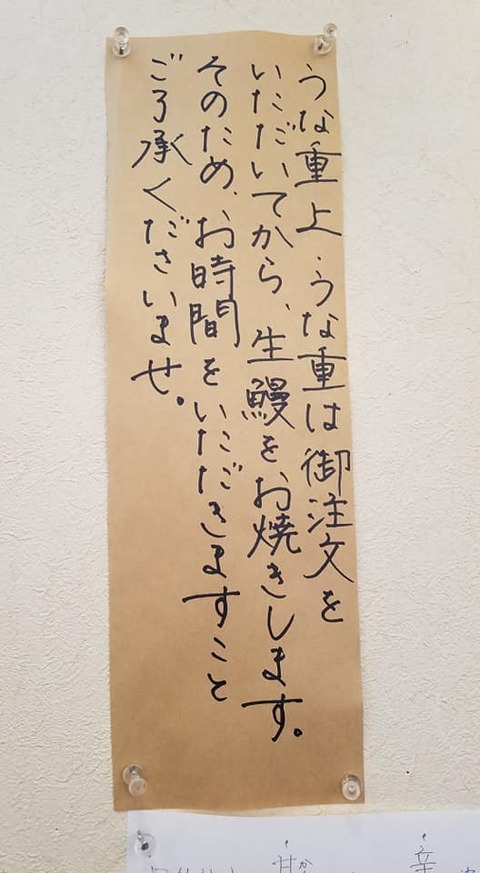 うな重上・うな重は御注文を
いただいてから、生鰻をお焼きします。
そのため、お時間をいただきますこと
ご了承くださいませ。